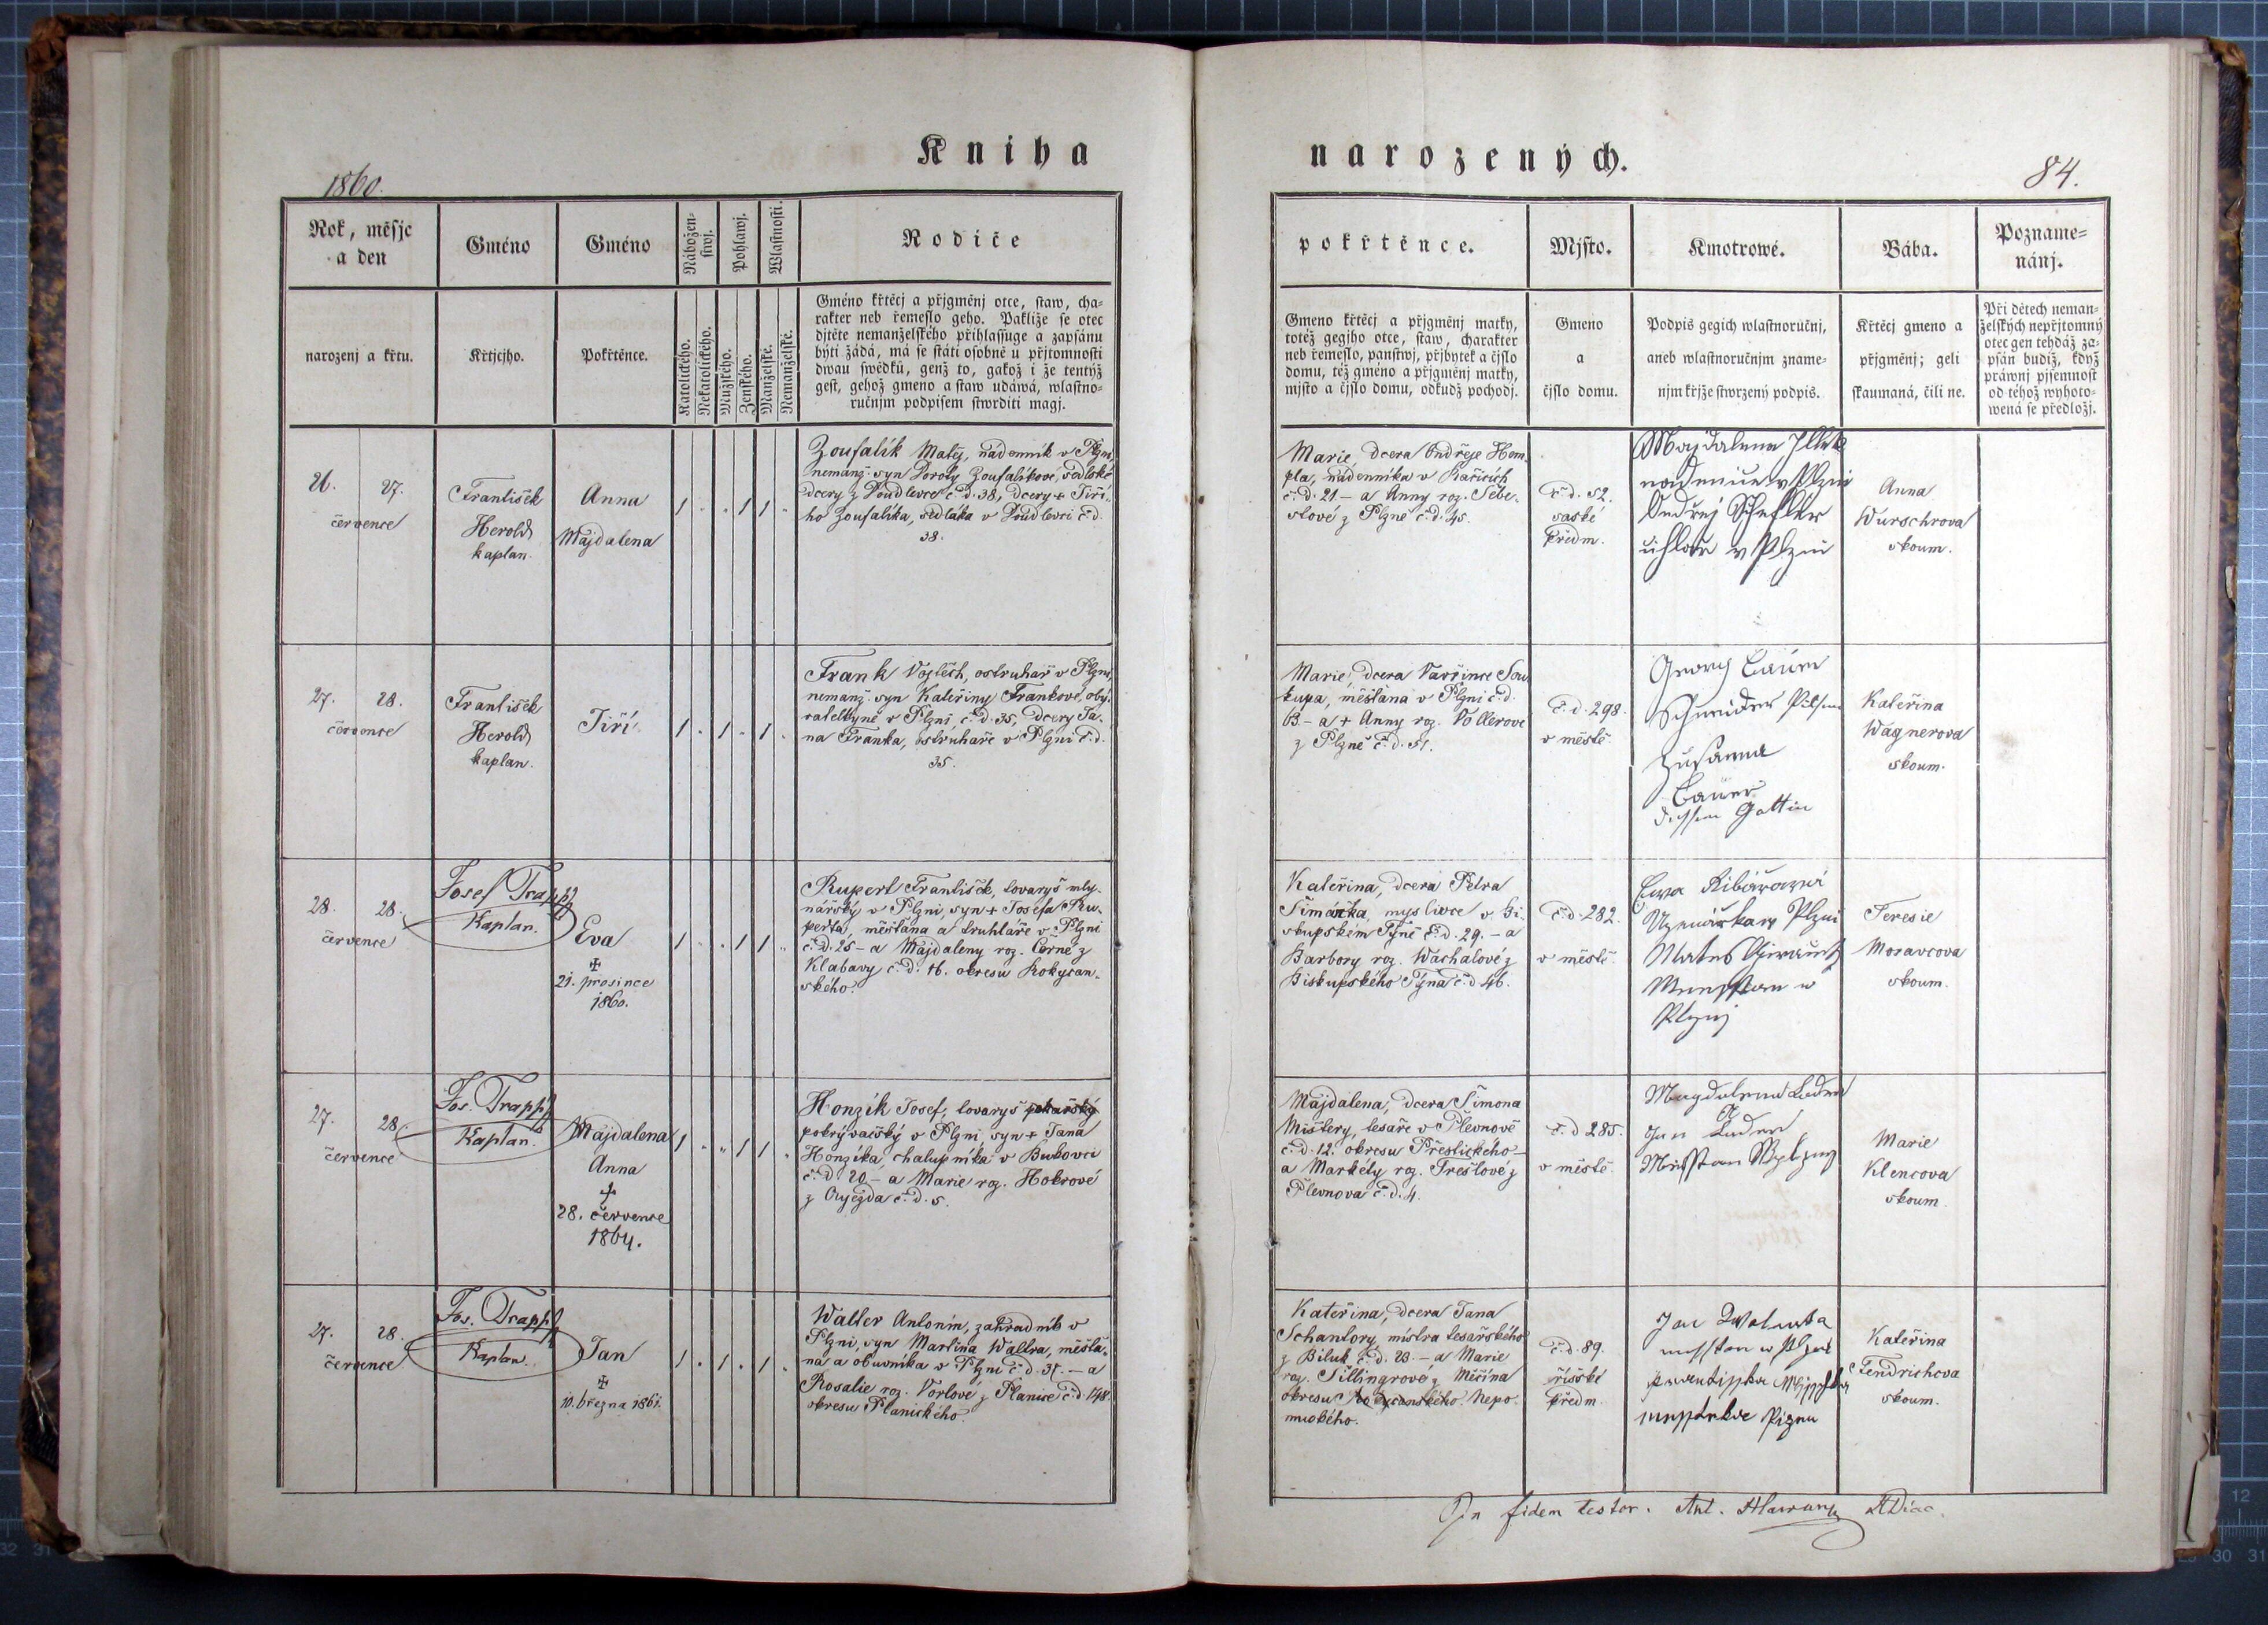 Kniha
narozených.
1860.
84.
Rok, měsjc
a den
Gméno
Gméno
Nábožen-
stwj.
Pohlawj.
Wlastnosti.
Rodiče
narozenj a křtu.
Křtjcjho.
Pokřtěnce.
Katolického.
Nekatolického.
Mužského.
Ženského.
Manželské.
Nemanželské.
Gméno křtěcj a přjgměnj otce, staw, cha-
rakter neb řemeslo geho. Pakliže se otec
djtěte nemanželského přihlassuge a zapsánu
býti žádá, má se státi osobně u přjtomnosti
dwau swědků, genž to, gakož i že tentýž
gest, gehož gmeno a staw udáwá, wlastno-
ručnjm podpisem stwrditi magj.
26. 27.
července
František
Herold
kaplan.
Anna
Majdalena
1 . . 1 1 .
Zoufalík Matěj, nádenník v Plzni,
nemanž. syn Doroty Zoufalíkové, sedlské
dcery z Doudlevce č.d. 38, dcery + Jiří-
ho Zoufalíka, sedláka v Doudlevci č.d.
38.
27. 28.
července
František
Herold
kaplan.
Jiří
1 . 1 . 1 .
Frank Vojtěch, ostruhař v Plzni,
nemanž. syn Kateřiny Frankové, oby-
vatelkyně v Plzni č.d. 35, dcery Ja-
na Franka, ostruhaře v Plzni č.d.
35.
28. 28.
července
Josef Trapp
Kaplan.
Eva
✠
21. prosince
1860.
1 . . 1 1 .
Rupert František, tovaryš mly-
nářský v Plzni, syn + Josefa Ru-
perta, měšťana a truhláře v Plzni
č.d. 25 – a Majdaleny roz. Černé z
Klabavy č.d. 16. okresu Rokycan-
ského.
27. 28.
července
Jos. Trapp
Kaplan.
Majdalena
Anna
✠
28. července
1864.
1 . . 1 1 .
Honzík Josef, tovaryš pekařský
pokrývačský v Plzni, syn + Jana
Honzíka, chalupníka v Bukovci
č.d. 20 – a Marie roz. Hokrové
z Oujezda č.d. 5.
27. 28.
července
Jos. Trapp
Kaplan.
Jan
✠
10. března 1861.
1 . 1 . 1 .
Walter Antonín, zahradník v
Plzni, syn Martina Waltra, měšťa-
na a obuvníka v Plzni č.d. 31. – a
Rosalie roz. Vorlové z Planice č.d. 148.
okresu Planického.
pokřtěnce.
Mjsto.
Kmotrowé.
Bába.
Pozname-
nánj.
Gmeno křtěcj a přjgměnj matky,
totéž gegjho otce, staw, charakter
neb řemeslo, panstwj, přjbytek a čjslo
domu, též gméno a přjgměnj matky,
mjsto a čjslo domu, odkudž pochodj.
Gmeno
a
čjslo domu.
Podpis gegich wlastnoručnj,
aneb wlastnoručnjm zname-
njm křjže stwrzený podpis.
Křtěcj gmeno a
přjgměnj; geli
skaumaná, čili ne.
Při dětech neman-
želských nepřjtomný
otec gen tehdáž za-
psán budiž, když
práwnj pjsemnost
od téhož wyhoto-
wená se předložj.
Marie, dcera Ondřeje Hem-
pla, nádenníka v
č.d. 21 – a Anny roz. Šebe-
slové z Plzně č.d. 45.
č.d. 52.
saské
předm.
Majdalena
v Plzni
Ondřej Scheffler
v Plzni
Anna
Wurschrova
skoum.
Marie, dcera Vavřince Sou-
kupa, měšťana v Plzni č.d.
63 – a + Anny roz. Völlerové
z Plzně č.d. 51.
č.d. 298.
v městě
Georg Bauer
Schneider Pilsen
Zusanna
Bauer
dessen Gattin
Kateřina
Wagnerova
skoum.
Kateřina, dcera Petra
Šimáčka, myslivce v Bi-
skupském Týně č.d. 29. – a
Barbory roz. Wachalové z
Biskupského Týna č.d. 46.
č.d. 282.
v městě.
Plzni
w
Teresie
Moravcova
skoum.
Majdalena, dcera Šimona
Mištery, tesaře v Plevnově
č.d. 12. okresu Přestického –
a Markéty roz. Trešlové z
Plevnova č.d. 4.
č.d. 285.
v městě.
Magdalena Luden
a
Jan Luden
Marie
Klencova
skoum.
Kateřina, dcera Jana
Schantory, mistra tesařského
z Biluk č.d. 23. – a Marie
roz. Šillingrové z Měčína
okresu Rokycanského Nepo-
muckého.
č.d. 89.
říšské
předm.
Jan
w Plzni
Kateřina
Fendrichova
skoum.
In fidem testor. Ant. Hlawan ADiac.